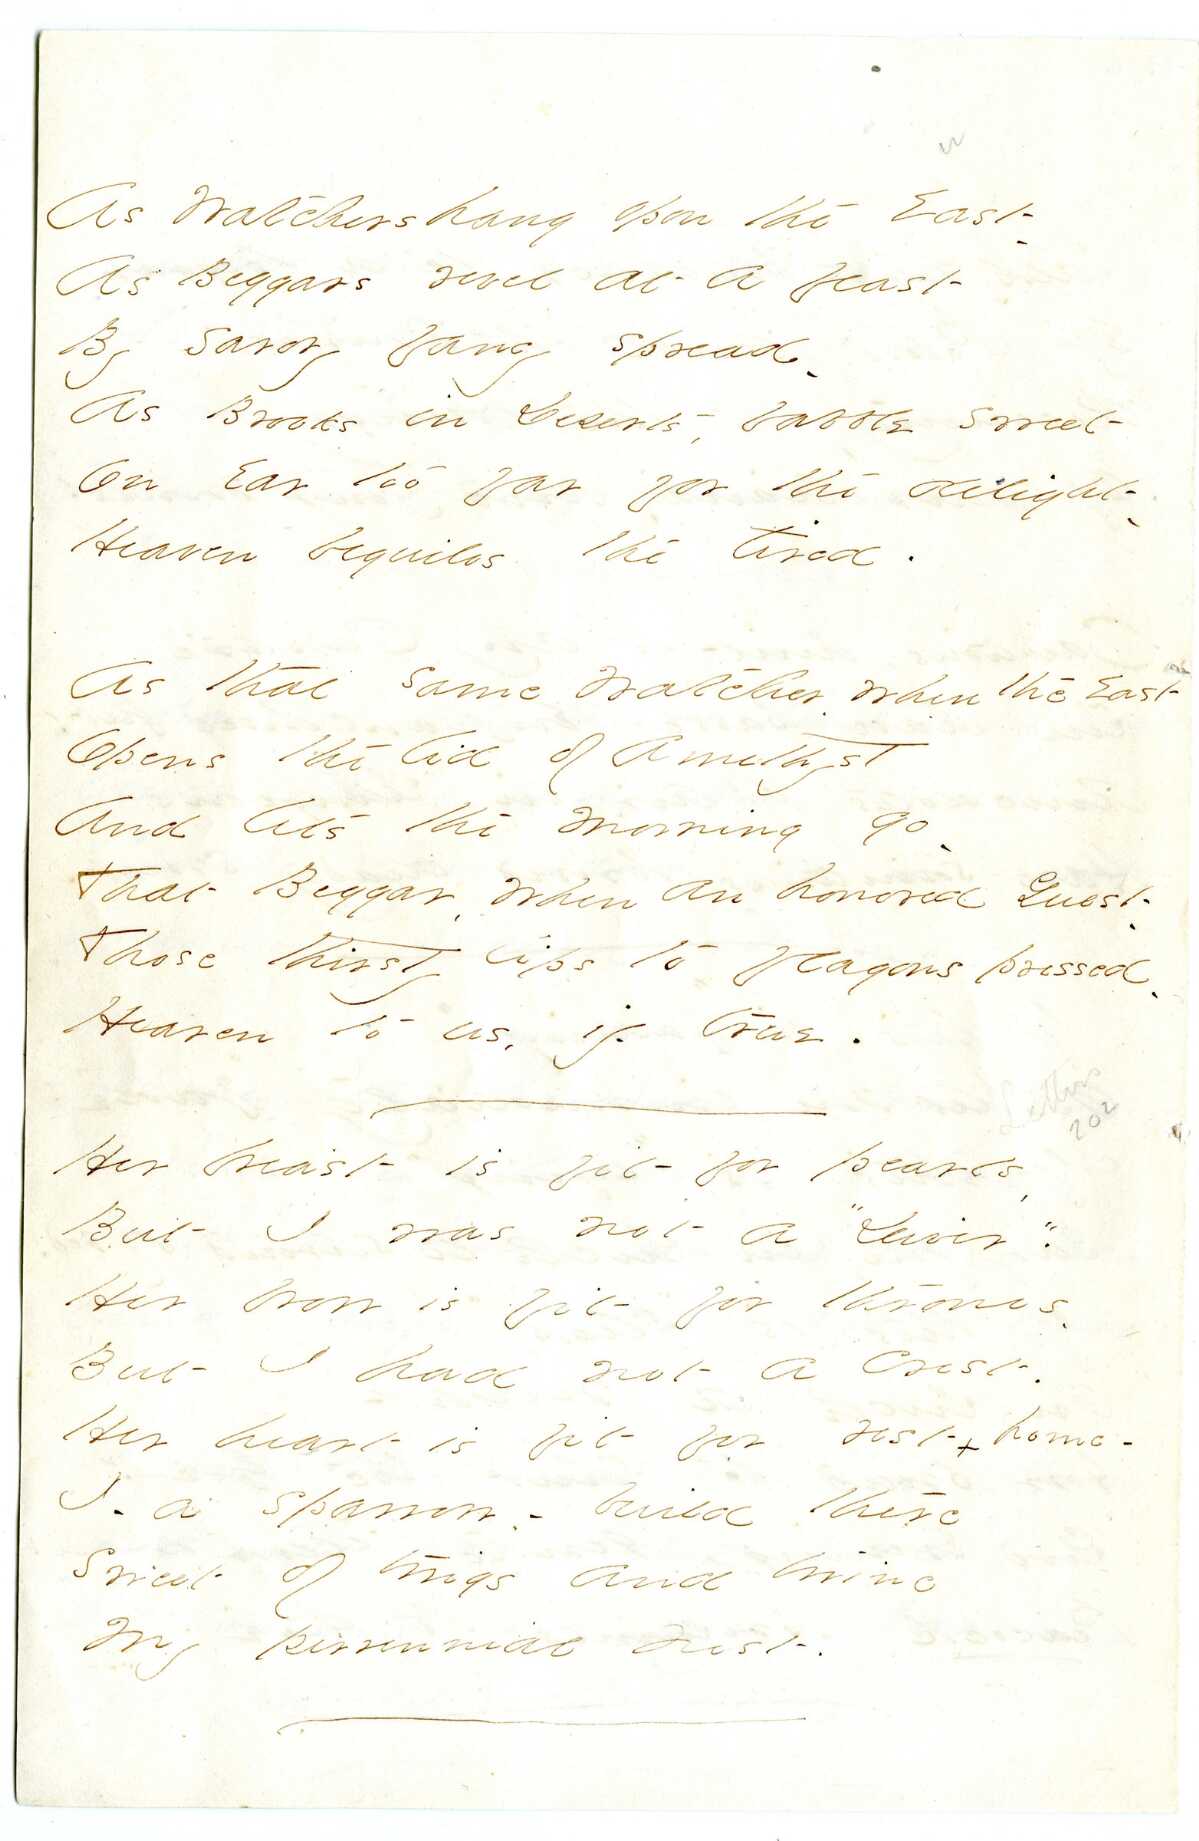 As Watchers hang opon the East -
As Beggars revel at a feast
By savory fancy spread -
As Brooks in Deserts, babble sweet
On Ear too far for the delight -
Heaven beguiles the tired.
As that same Watcher, when the East
Opens the lid of Amethyst
And lets the morning go -
That Beggar, when an honored Guest -
Those thirsty lips to flagons pressed -
Heaven to us, if true.
Letters
202
Her breast is fit for pearls,
But I was not a "Diver".
Her brow is fit for thrones -
But I had not a crest.
Her heart is fit for rest + home -
I - a sparrow - build there
Sweet of twigs and twine
My perrennial nest.